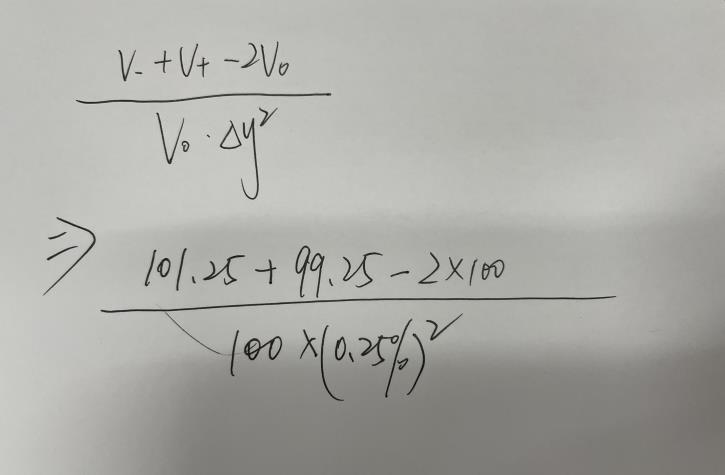 V- + V+ - 2V₀
V₀ · Δy²
⇒ 101.25 + 99.25 - 2×100
100 × (0.25%)²